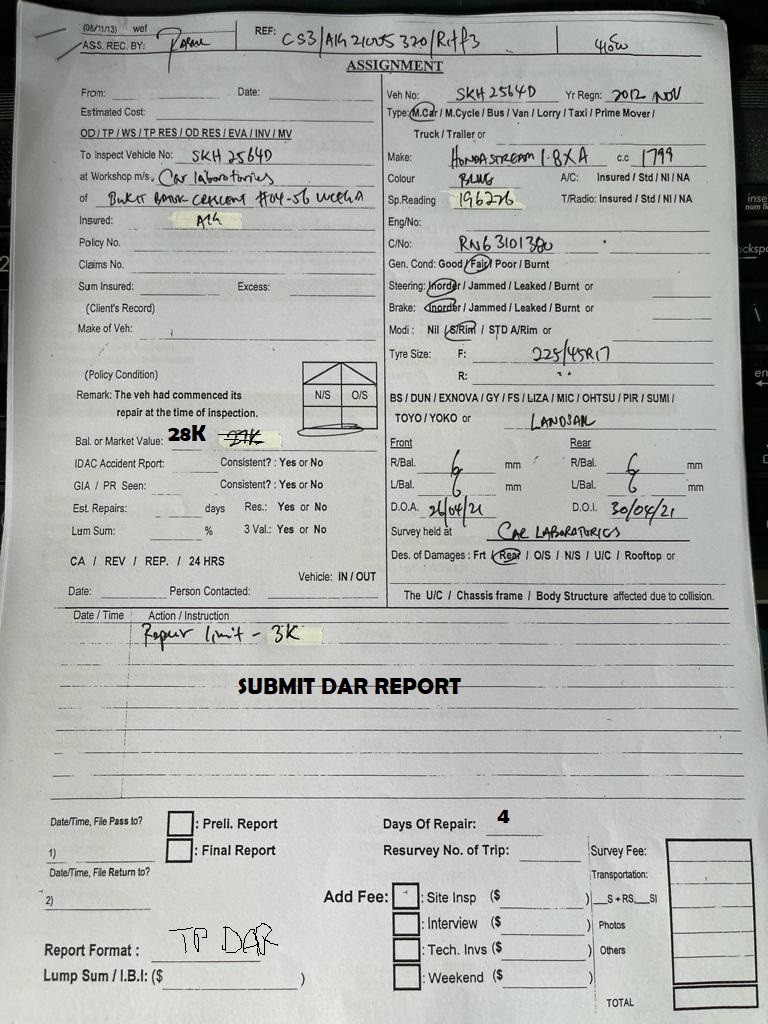 (06/11/13) wef
ASS. REC. BY:
REF: CS3/AIG21005320/R1ff3
ASSIGNMENT
From: Date:
Estimated Cost:
OD / TP / WS / TP RES / OD RES / EVA / INV / MV
To Inspect Vehicle No: SKH 2564D
at Workshop m/s. Car laboratories
of BUKIT BATOK CRESCENT #04-56 WCEGA
Insured: AIG
Policy No.
Claims No.
Sum Insured: Excess:
(Client's Record)
Make of Veh:
(Policy Condition)
Remark: The veh had commenced its
repair at the time of inspection.
N/S O/S
Bal. or Market Value: 28K 27K
IDAC Accident Rport: Consistent? : Yes or No
GIA / PR Seen: Consistent? : Yes or No
Est. Repairs: days Res.: Yes or No
Lum Sum: % 3 Val.: Yes or No
CA / REV / REP. / 24 HRS
Vehicle: IN / OUT
Date: Person Contacted:
Veh No: SKH 2564D Yr Regn: 2012 NOV
Type: M.Car / M.Cycle / Bus / Van / Lorry / Taxi / Prime Mover /
Truck / Trailer or
Make: HONDA STREAM 1.8XA c.c 1799
Colour BLUE A/C: Insured / Std / NI / NA
Sp.Reading 196226 T/Radio: Insured / Std / NI / NA
Eng/No:
C/No: RN63101380
Gen. Cond: Good / Fair / Poor / Burnt
Steering: Inorder / Jammed / Leaked / Burnt or
Brake: Inorder / Jammed / Leaked / Burnt or
Modi : Nil / S/Rim / STD A/Rim or
Tyre Size: F: 225/45R17
R: "
BS / DUN / EXNOVA / GY / FS / LIZA / MIC / OHTSU / PIR / SUMI /
TOYO / YOKO or LANDSAIL
Front Rear
R/Bal. 6 mm R/Bal. 6 mm
L/Bal. 6 mm L/Bal. 6 mm
D.O.A. 26/04/21 D.O.I. 30/04/21
Survey held at CAR LABORATORIES
Des. of Damages : Frt / Rear / O/S / N/S / U/C / Rooftop or
The U/C / Chassis frame / Body Structure affected due to collision.
Date / Time Action / Instruction
Repair limit - 3K
SUBMIT DAR REPORT
Date/Time, File Pass to?
1)
Date/Time, File Return to?
2)
: Preli. Report
: Final Report
Days Of Repair: 4
Resurvey No. of Trip:
Add Fee: : Site Insp ($ )
: Interview ($ )
: Tech. Invs ($ )
: Weekend ($ )
Survey Fee:
Transportation:
S + RS, SI
Photos
Others
TOTAL
Report Format : TP DAR
Lump Sum / I.B.I: ($ )